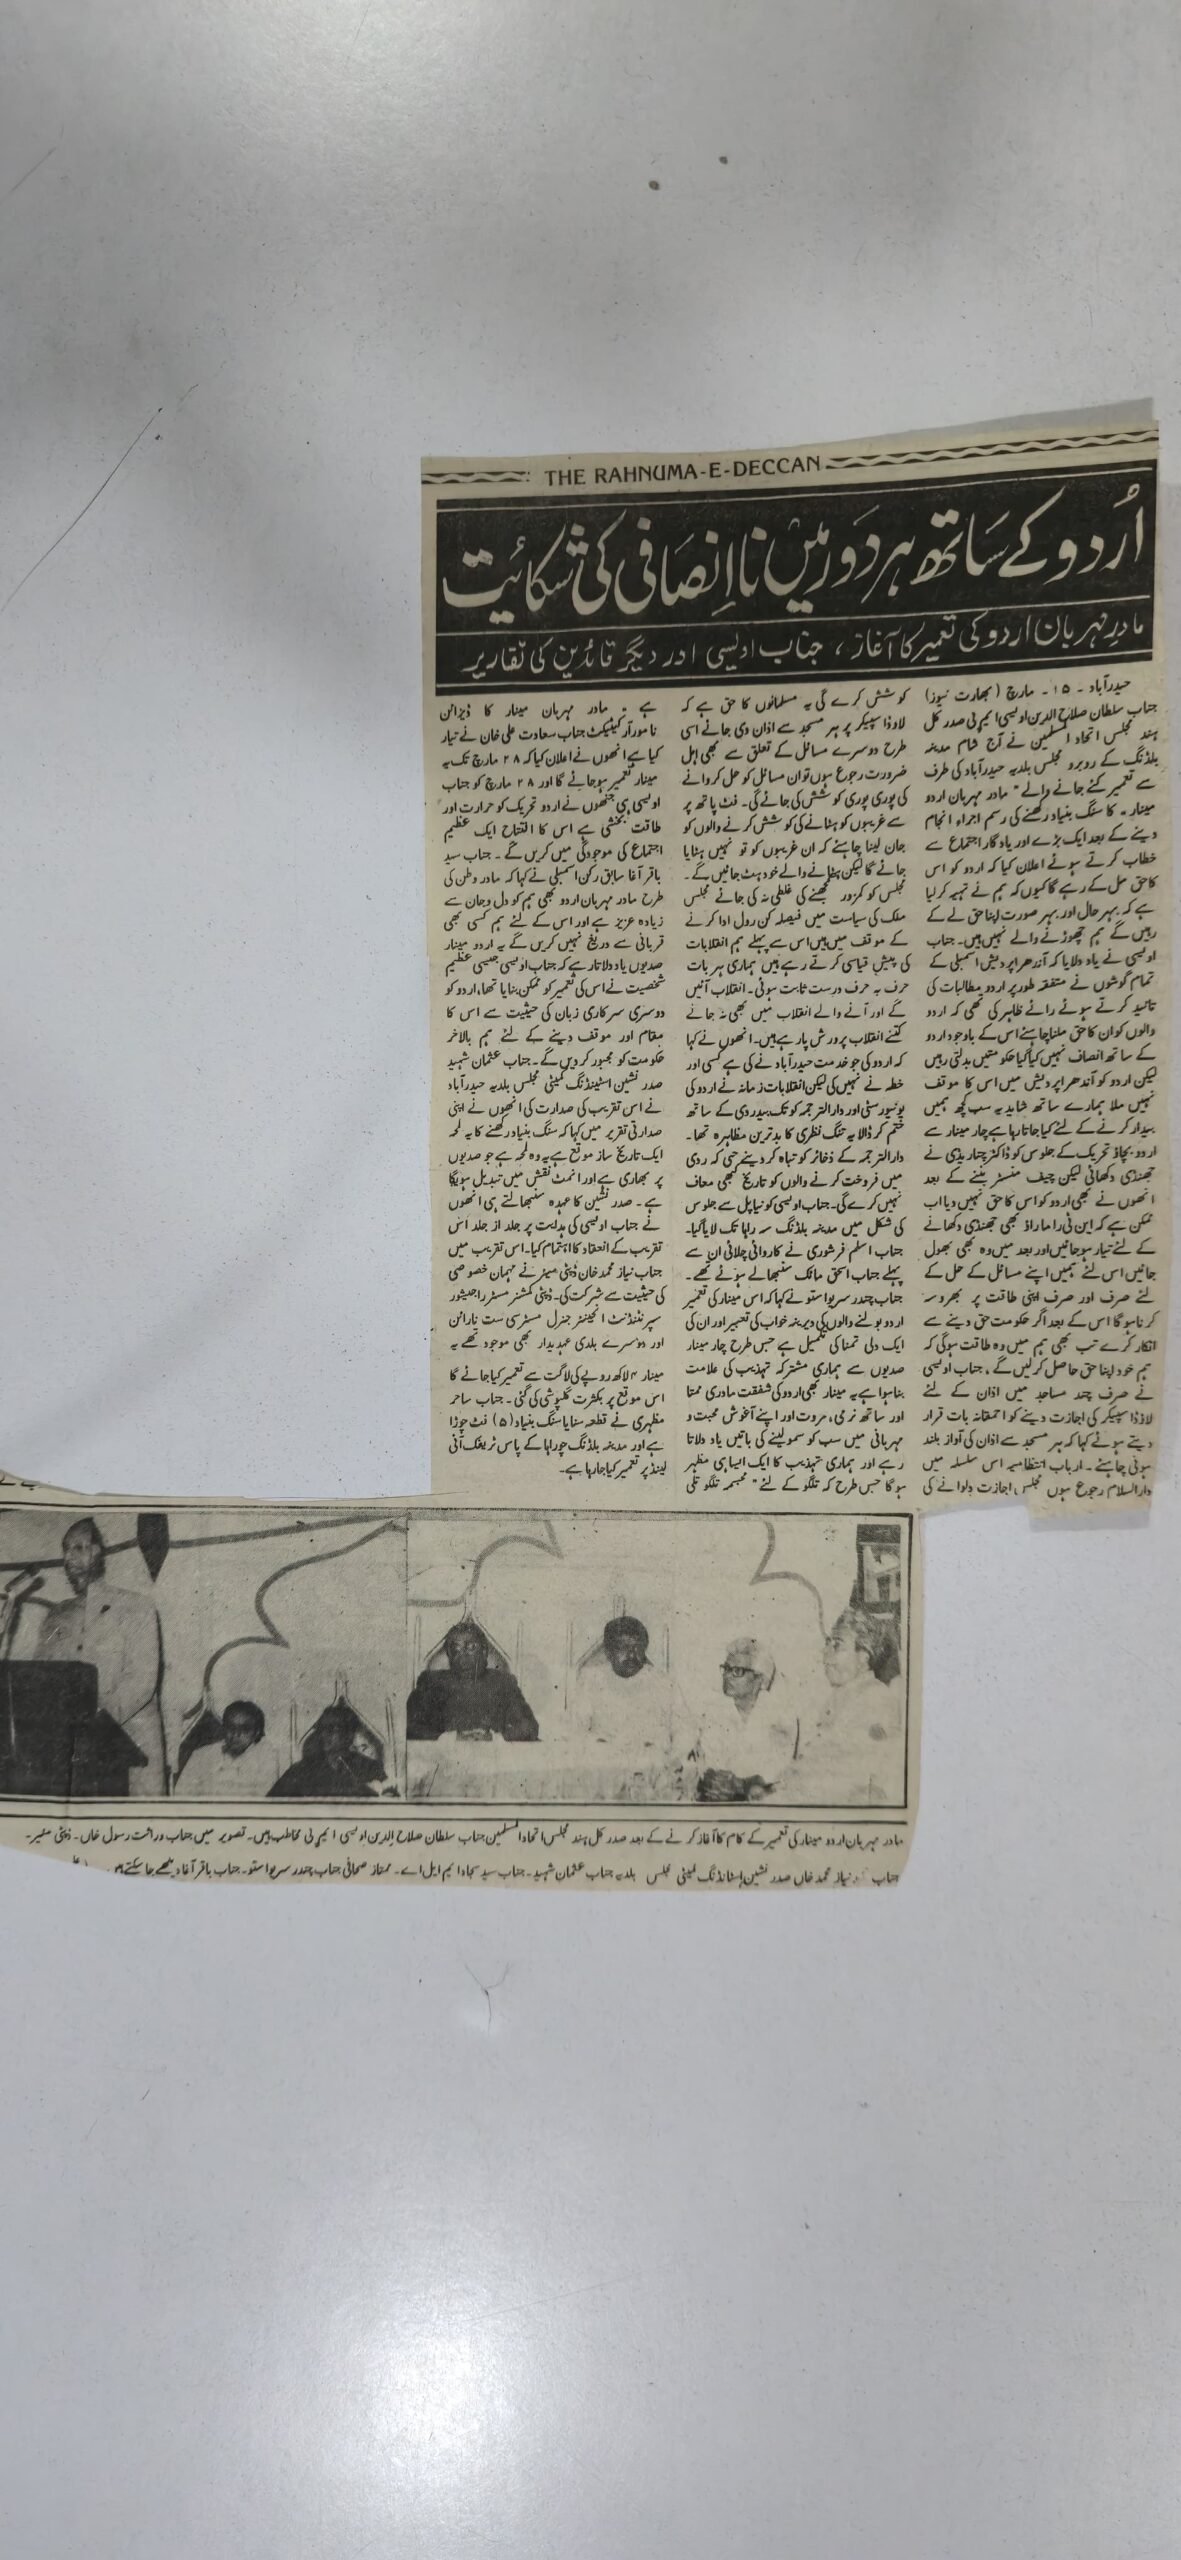 THE RAHNUMA-E-DECCAN
اُردو کے ساتھ ہر دور میں نا انصافی کی شکائیت
مادر مہربان اردو کی تعمیر کا آغاز ، جناب اویسی اور دیگر قائدین کی تقاریر
حیدرآباد ۔ ۱۵ ۔ مارچ (بھارت نیوز)
جناب سلطان صلاح الدین اویسی ایم پی صدر کل
ہند مجلس اتحاد المسلمین نے آج شام مدینہ
بلڈنگ کے روبرو مجلس بلدیہ حیدرآباد کی طرف
سے تعمیر کئے جانے والے " مادر مہربان اردو
مینار " کا سنگ بنیاد رکھنے کی رسم اجراء انجام
دینے کے بعد ایک بڑے اور یادگار اجتماع سے
خطاب کرتے ہوئے اعلان کیا کہ اردو کو اس
کا حق مل کے رہے گا کیوں کہ ہم نے تہیہ کر لیا
ہے کہ بہر حال اور بہر صورت اپنا حق لے کے
رہیں گے ہم چھوڑنے والے نہیں ہیں ۔ جناب
اویسی نے یاد دلایا کہ آندھرا پردیش اسمبلی کے
تمام گوشوں نے متفقہ طور پر اردو مطالبات کی
تائید کرتے ہوئے رائے ظاہر کی تھی کہ اردو
والوں کو ان کا حق ملنا چاہئے اس کے باوجود اردو
کے ساتھ انصاف نہیں کیا گیا حکومتیں بدلتی رہیں
لیکن اردو کو آندھرا پردیش میں اس کا موقف
نہیں ملا ہمارے ساتھ شاید یہ سب کچھ ہمیں
بیدار کرنے کے لئے کیا جاتا رہا ہے چار مینار سے
اردو بچاؤ تحریک کے جلوس کو ڈاکٹر چنا ریڈی نے
جھنڈی دکھائی لیکن چیف منسٹر بننے کے بعد
انھوں نے بھی اردو کو اس کا حق نہیں دیا اب
ممکن ہے کہ این ٹی راما راؤ بھی جھنڈی دکھانے
کے لئے تیار ہو جائیں اور بعد میں وہ بھی بھول
جائیں اس لئے ہمیں اپنے مسائل کے حل کے
لئے صرف اور صرف اپنی طاقت پر بھروسہ
کرنا ہوگا اس کے بعد اگر حکومت حق دینے سے
انکار کرے تب بھی ہم میں وہ طاقت ہوگی کہ
ہم خود اپنا حق حاصل کر لیں گے ۔ جناب اویسی
نے صرف چند مساجد میں اذان کے لئے
لاؤڈ اسپیکر کی اجازت دینے کو احمقانہ بات قرار
دیتے ہوئے کہا کہ ہر مسجد سے اذان کی آواز بلند
ہونی چاہئے ۔ ارباب انتظامیہ اس سلسلہ میں
دارالسلام رجوع ہوں مجلس اجازت دلوانے کی
کوشش کرے گی یہ مسلمانوں کا حق ہے کہ
لاوڈ اسپیکر پر ہر مسجد سے اذان دی جائے اسی
طرح دوسرے مسائل کے تعلق سے بھی اہل
ضرورت رجوع ہوں تو ان مسائل کو حل کروانے
کی پوری پوری کوشش کی جائے گی ۔ فٹ پاتھ پر
سے غریبوں کو ہٹانے کی کوشش کرنے والوں کو
جان لینا چاہئے کہ ان غریبوں کو تو نہیں ہٹایا
جائے گا لیکن ہٹانے والے خود ہٹ جائیں گے ۔
مجلس کو کمزور سمجھنے کی غلطی نہ کی جائے مجلس
ملک کی سیاست میں فیصلہ کن رول ادا کرنے
کے موقف میں ہیں اس سے پہلے ہم انقلابات
کی پیش قیاسی کرتے رہے ہیں ہماری ہر بات
حرف بہ حرف درست ثابت ہوئی ۔ انقلاب آئیں
گے اور آنے والے انقلاب میں بھی نہ جانے
کتنے انقلاب پرورش پا رہے ہیں ۔ انھوں نے کہا
کہ اردو کی جو خدمت حیدرآباد نے کی ہے کسی اور
خطہ نے نہیں کی لیکن انقلابات زمانہ نے اردو کی
یونیورسٹی اور دارالترجمہ کو تک بیدردی کے ساتھ
ختم کر ڈالا یہ تنگ نظری کا بدترین مظاہرہ تھا ۔
دارالترجمہ کے ذخائر کو تباہ کر دینے حتی کہ ردی
میں فروخت کرنے والوں کو تاریخ کبھی معاف
نہیں کرے گی ۔ جناب اویسی کو نیا پل سے جلوس
کی شکل میں مدینہ بلڈنگ سہ راہا تک لایا گیا ۔
جناب اسلم فرشوری نے کاروائی چلائی ان سے
پہلے جناب اسحق مائک سنبھالے ہوئے تھے ۔
جناب چندر سریواستو نے کہا کہ اس مینار کی تعمیر
اردو بولنے والوں کی دیرینہ خواب کی تعبیر اور ان کی
ایک دلی تمنا کی تکمیل ہے جس طرح چار مینار
صدیوں سے ہماری مشترکہ تہذیب کی علامت
بنا ہوا ہے یہ مینار بھی اردو کی شفقت مادری ممتا
اور ساتھ نرمی ، مروت اور اپنے آغوش محبت و
مہربانی میں سب کو سمو لینے کی باتیں یاد دلاتا
رہے اور ہماری تہذیب کا ایک ایسا ہی مظہر
ہوگا جس طرح کہ تلگو کے لئے " مجسمہ تلگو تلی
ہے ۔ مادر مہربان مینار کا ڈیزائن
نامور آرکیٹیکٹ جناب سعادت علی خان نے تیار
کیا ہے انھوں نے اعلان کیا کہ ۲۸ مارچ تک یہ
مینار تعمیر ہو جائے گا اور ۲۸ مارچ کو جناب
اویسی ہی جنھوں نے اردو تحریک کو حرارت اور
طاقت بخشی ہے اس کا افتتاح ایک عظیم
اجتماع کی موجودگی میں کریں گے ۔ جناب سید
باقر آغا سابق رکن اسمبلی نے کہا کہ مادر وطن کی
طرح مادر مہربان اردو بھی ہم کو دل و جان سے
زیادہ عزیز ہے اور اس کے لئے ہم کسی بھی
قربانی سے دریغ نہیں کریں گے یہ اردو مینار
صدیوں یاد دلاتا رہے کہ جناب اویسی جیسی عظیم
شخصیت نے اس کی تعمیر کو ممکن بنایا تھا ، اردو کو
دوسری سرکاری زبان کی حیثیت سے اس کا
مقام اور موقف دینے کے لئے ہم بالآخر
حکومت کو مجبور کر دیں گے ۔ جناب عثمان شہید
صدر نشین اسٹینڈنگ کمیٹی مجلس بلدیہ حیدرآباد
نے اس تقریب کی صدارت کی انھوں نے اپنی
صدارتی تقریر میں کہا کہ سنگ بنیاد رکھنے کا یہ لمحہ
ایک تاریخ ساز موقع ہے یہ وہ لمحہ ہے جو صدیوں
پر بھاری ہے اور انمٹ نقش میں تبدیل ہو چکا
ہے ۔ صدر نشین کا عہدہ سنبھالتے ہی انھوں
نے جناب اویسی کی ہدایت پر جلد از جلد اس
تقریب کے انعقاد کا اہتمام کیا ۔ اس تقریب میں
جناب نیاز محمد خان ڈپٹی میئر نے مہمان خصوصی
کی حیثیت سے شرکت کی ۔ ڈپٹی کمشنر مسٹر راجیشور
سپرنٹنڈنٹ انجینئر جنرل مسٹر سی ست نارائن
اور دوسرے بلدی عہدیدار بھی موجود تھے یہ
مینار ۴ لاکھ روپے کی لاگت سے تعمیر کیا جائے گا
اس موقع پر بکثرت گلپوشی کی گئی ۔ جناب ساحر
مظہری نے قطعہ سنایا سنگ بنیاد (۵) فٹ چوڑا
ہے اور مدینہ بلڈنگ چوراہا کے پاس ٹریفک آئی
لینڈ پر تعمیر کیا جا رہا ہے ۔
مادر مہربان اردو مینار کی تعمیر کے کام کا آغاز کرنے کے بعد صدر کل ہند مجلس اتحاد المسلمین جناب سلطان صلاح الدین اویسی ایم پی مخاطب ہیں ۔ تصویر میں جناب وراثت رسول خاں ۔ ڈپٹی میئر ۔
جناب نیاز محمد خاں صدر نشین اسٹانڈنگ کمیٹی مجلس بلدیہ جناب عثمان شہید ۔ جناب سید سجاد ایم ایل اے ۔ ممتاز صحافی جناب چندر سریواستو ۔ جناب باقر آغا دیکھے جا سکتے